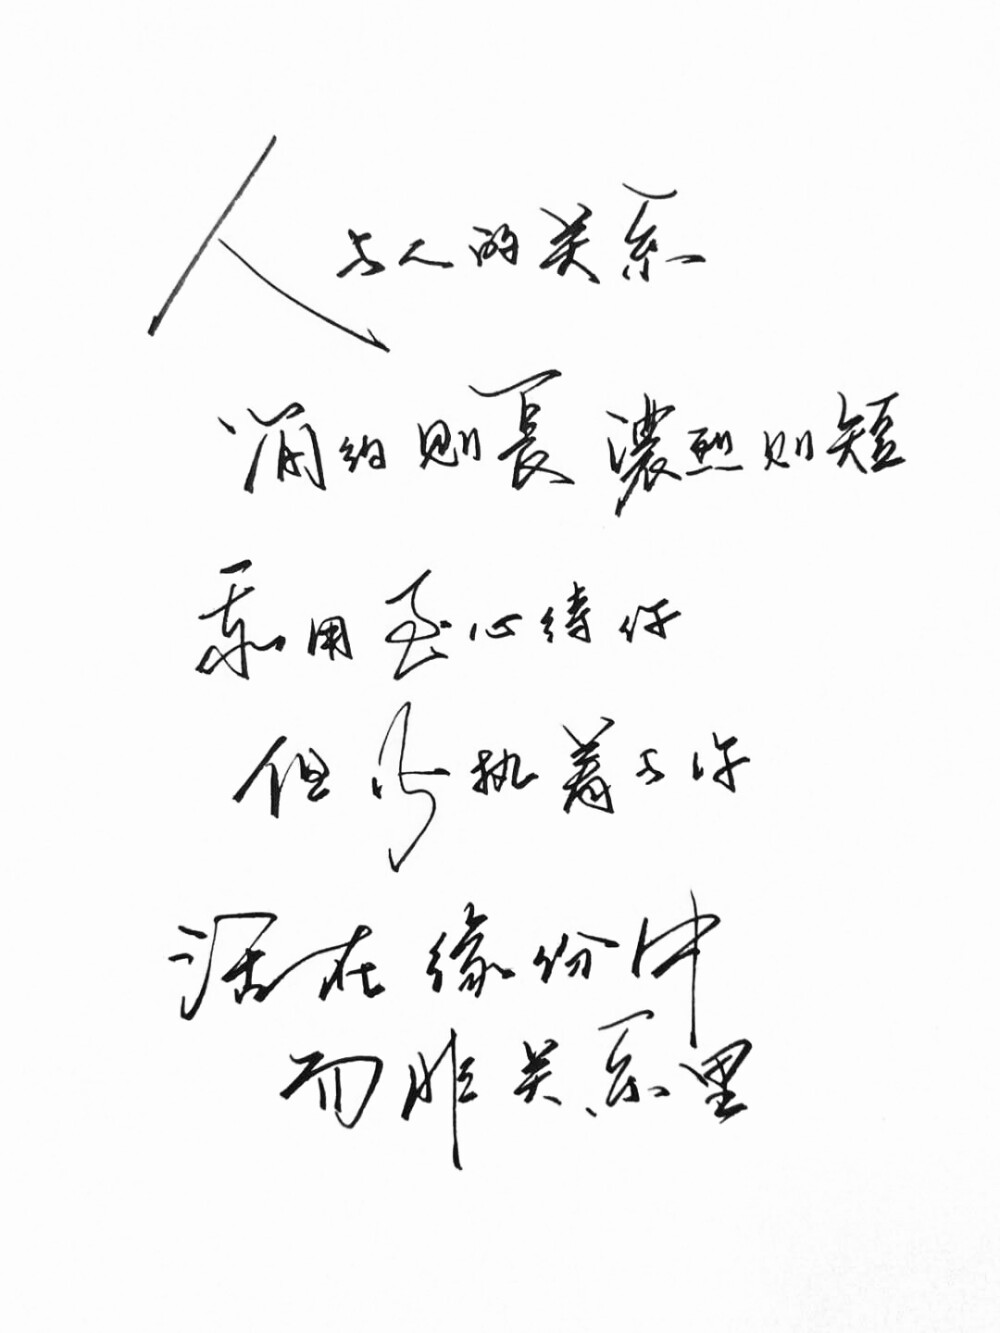 人与人的关系
简约则長 濃烈则短
我用至心待你
但不执着于你
活在缘份中
而非关系里